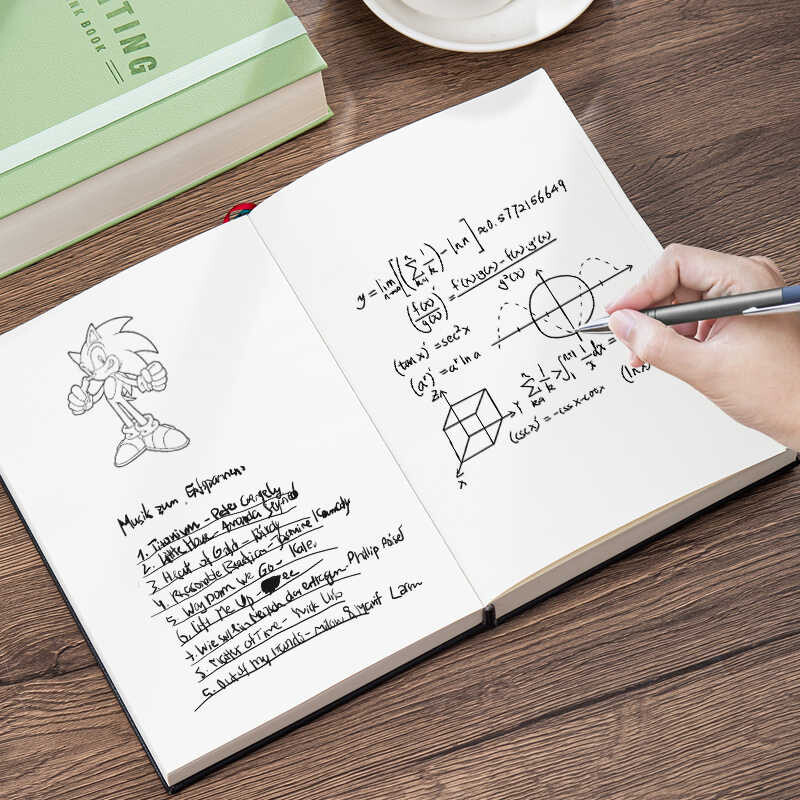 ATING
NK BOOK
Musik zum Entspannen
1. Titanium - Peter Gergely
2. Little House - Amanda Seyfried
3. Heart of Gold - Birdy
4. Reasonable Reaction - Jasmine Kennedy
5. Way Down We Go - Kaleo
6. Lift Me Up -
7. Wie soll ein Mensch das ertragen - Philip Poisel
8. Matter of Time -
9. Out of My Hands - Milow & Marit Larsen
γ = lim n→∞ [(∑ k=1 n 1/k) - ln n] ≈ 0.5772156649
(f(x)/g(x))' = f'(x)g(x) - f(x)g'(x) / g²(x)
(tan x)' = sec² x
(aˣ)' = aˣ ln a
∑ k=1 n 1/k > ∫ 1 n+1 1/x dx =
Z
Y
X
(csc x)' = -csc x · cot x
(ln x)